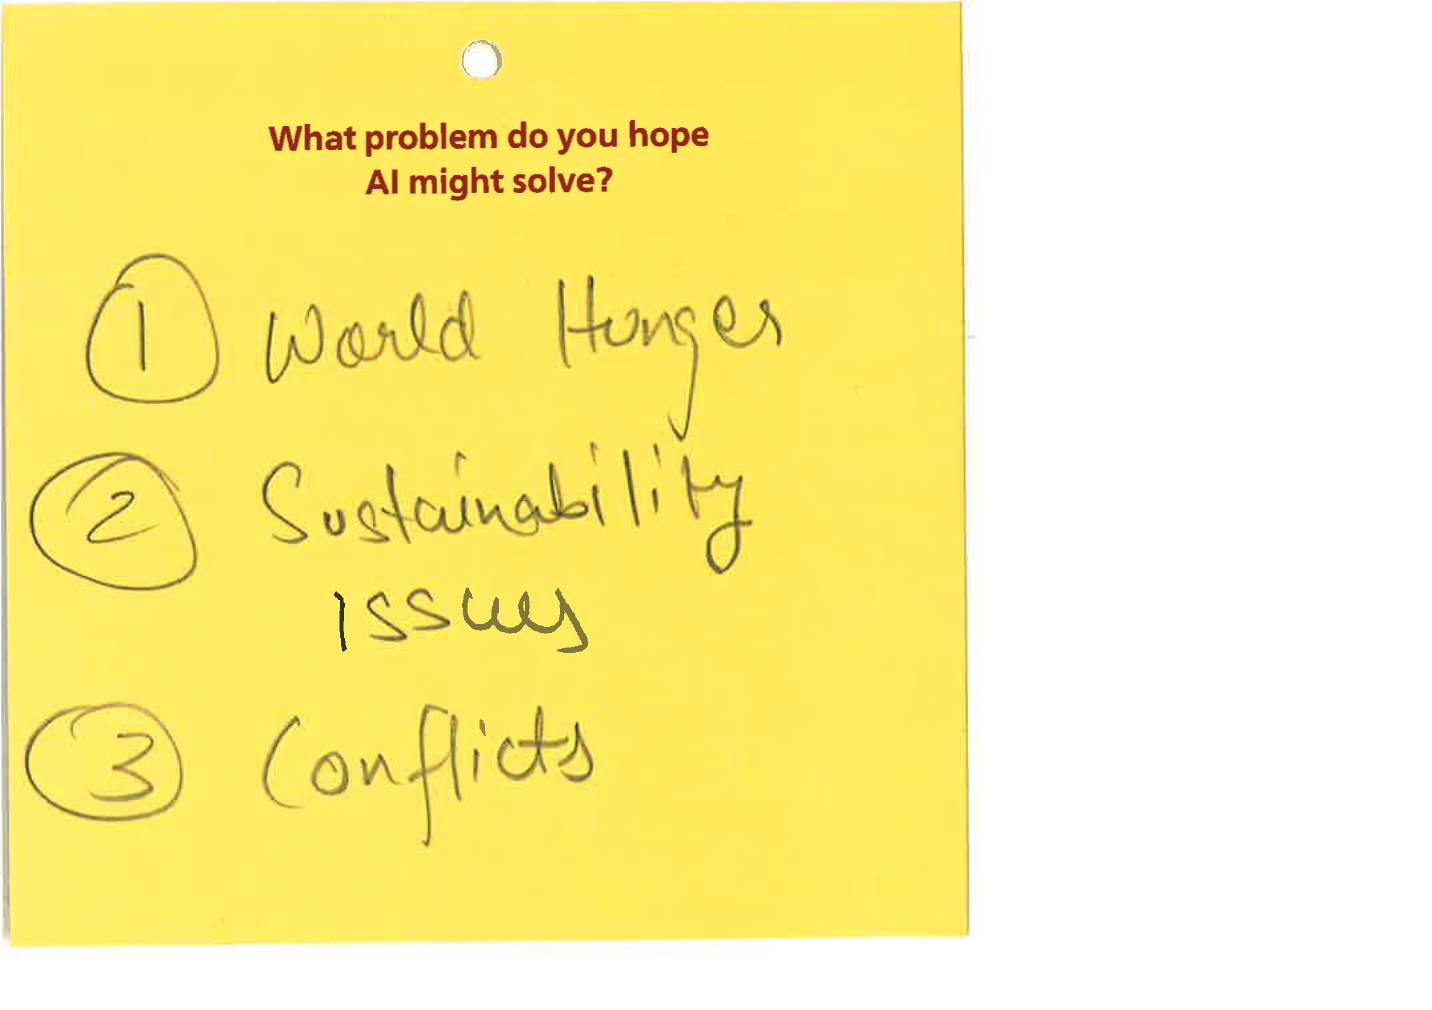 What problem do you hope
AI might solve?
1 World Hunger
2 Sustainability
issues
3 Conflicts